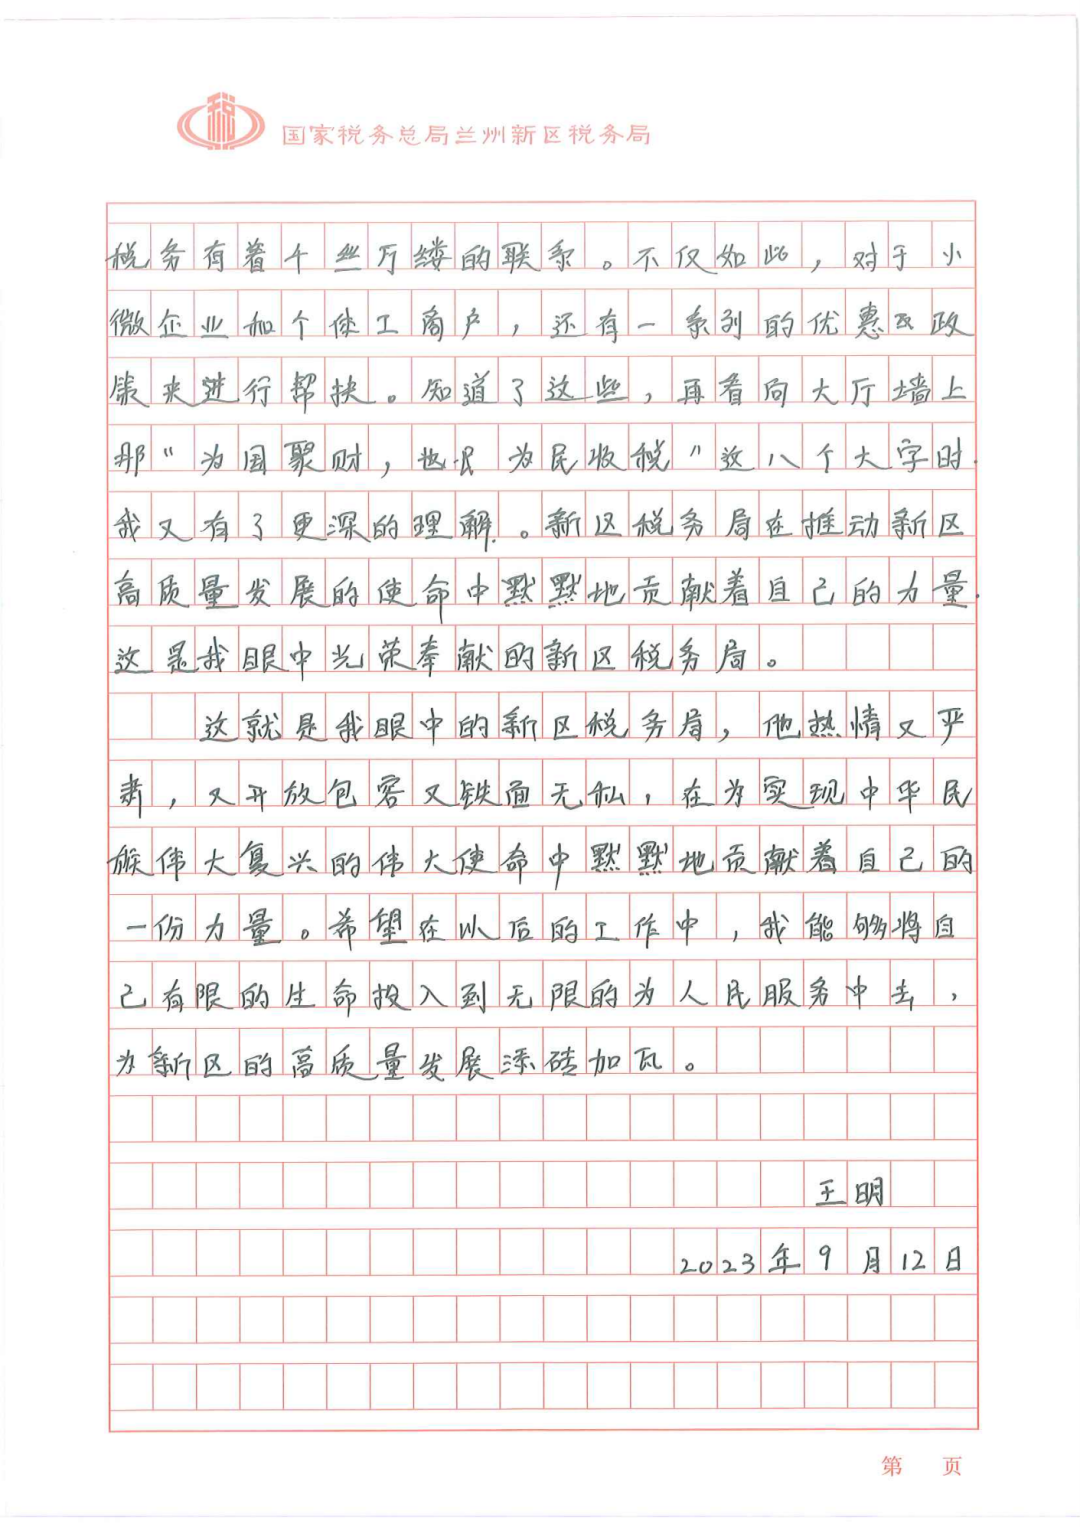 国家税务总局兰州新区税务局
税务有着千丝万缕的联系。不仅如此，对于小
微企业和个体工商户，还有一系列的优惠政
策来进行帮扶。知道了这些，再看向大厅墙上
那“为国聚财，为民收税”这八个大字时，
我又有了更深的理解。新区税务局在推动新区
高质量发展的使命中默默地贡献着自己的力量，
这是我眼中光荣奉献的新区税务局。
这就是我眼中的新区税务局，他热情又严
肃，又开放包容又铁面无私，在为实现中华民
族伟大复兴的伟大使命中默默地贡献着自己的
一份力量。希望在以后的工作中，我能够将自
己有限的生命投入到无限的为人民服务中去，
为新区的高质量发展添砖加瓦。
王明
2023年9月12日
第 页